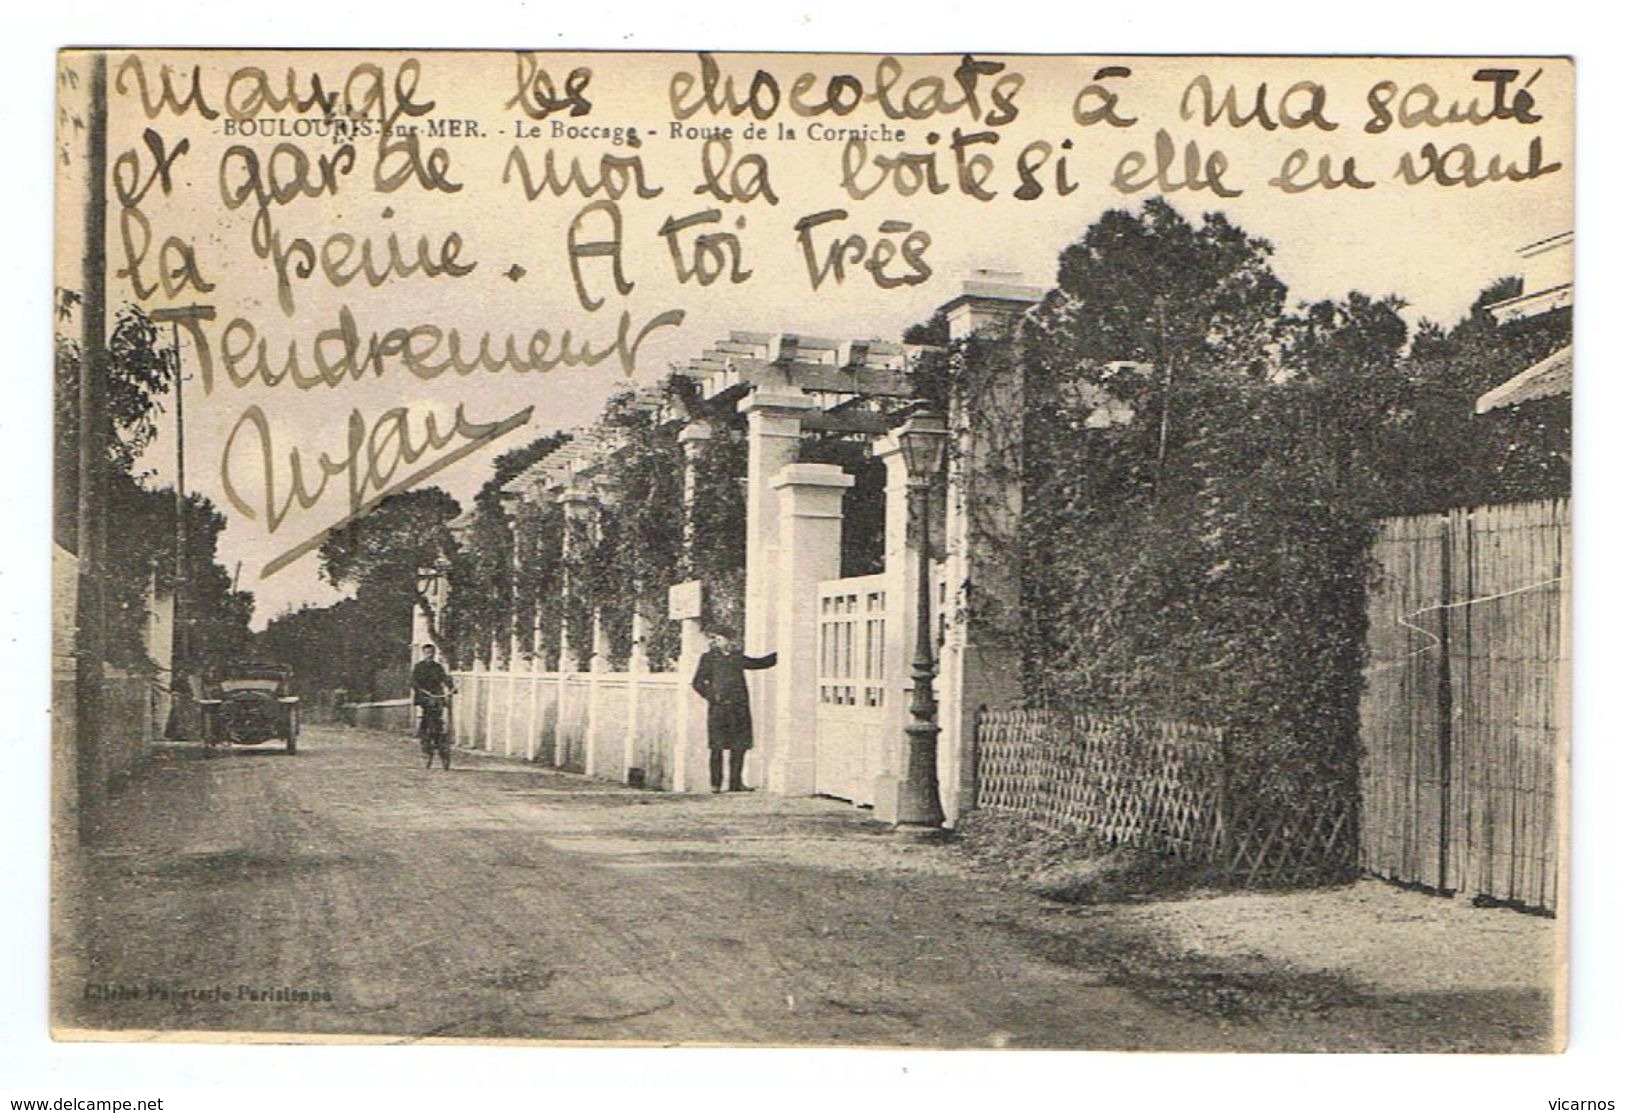 mange les chocolats à ma santé
BOULOURIS-sur-MER. - Le Boccage - Route de la Corniche
et garde moi la boite si elle en vaut
la peine. A toi très
Tendrement
Cliché Papeterie Parisienne
www.delcampe.net
vicarnos